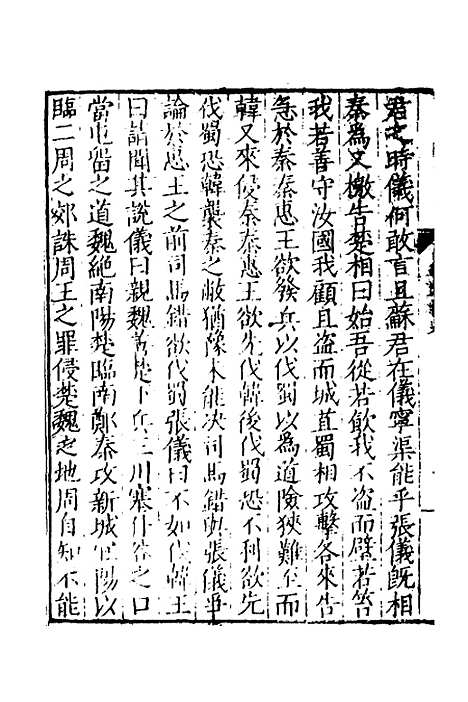 君之時儀何敢言且蘇君在儀寧渠能乎張儀旣相
秦爲文檄告楚相曰始吾從若飮我不盜而璧若笞
我若善守汝國我顧且盜而城苴蜀相攻擊各來告
急於秦秦惠王欲發兵以伐蜀以爲道險狹難至而
韓又來侵秦秦惠王欲先伐韓後伐蜀恐不利欲先
伐蜀恐韓襲秦之敝猶豫未能決司馬錯與張儀爭
論於惠王之前司馬錯欲伐蜀張儀曰不如伐韓王
曰請聞其說儀曰親魏善楚下兵三川塞什谷之口
當屯留之道魏絶南陽楚臨南鄭秦攻新城宜陽以
臨二周之郊誅周王之罪侵楚魏之地周自知不能